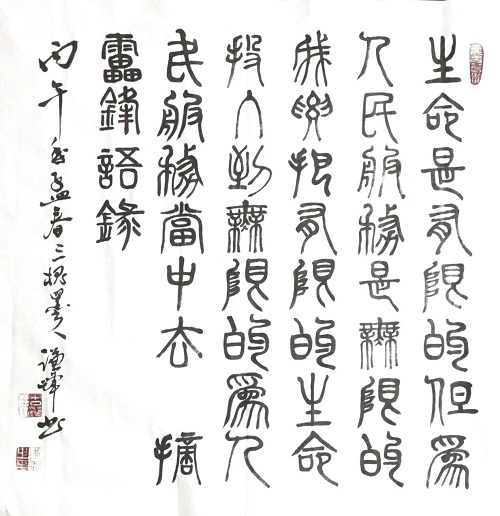 生命是有限的但為
人民服務是無限的
我要把有限的生命
投入到無限的為人
民服務當中去 摘
雷鋒語錄
丙午年孟春三槐墨人